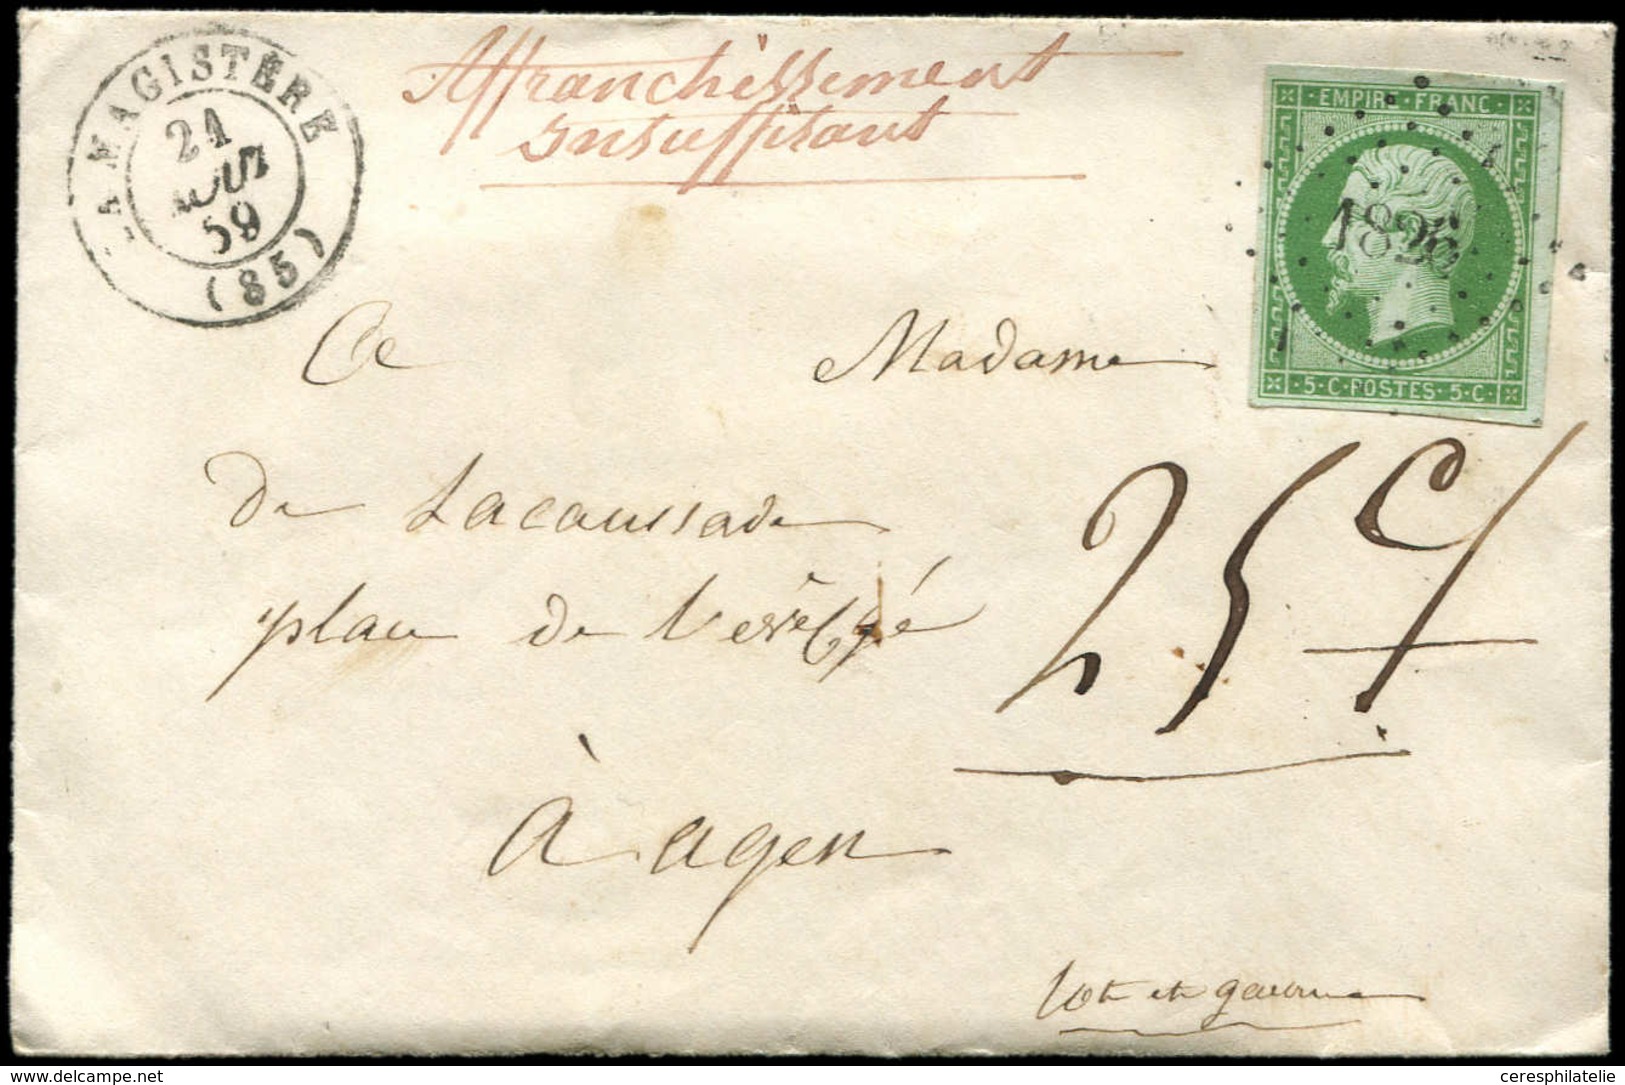 LAMAGISTÈRE
21
AOUT
59
(85)
Affranchissement
Insuffisant
EMPIRE FRANC
1826
5 · C · POSTES · 5 · C
A Madame
De Lacaussade
place de l'évêché
25 c
à agen
lot et garonne
delcampe.net
ceresphilatelie